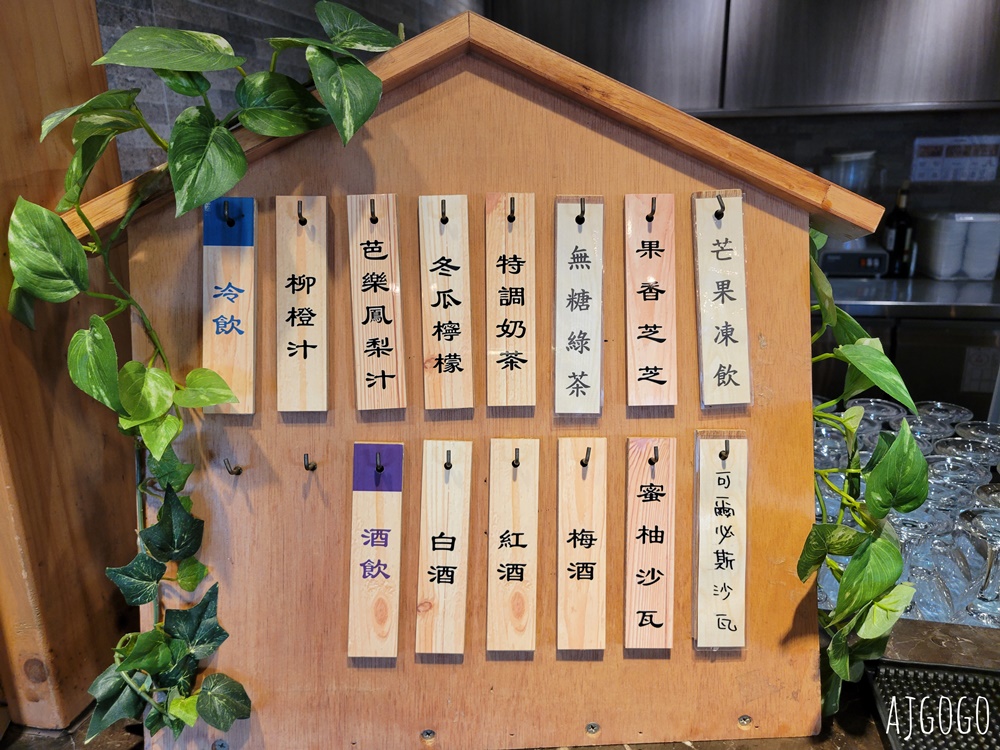 冷飲
柳橙汁
芭樂鳳梨汁
冬瓜檸檬
特調奶茶
無糖綠茶
果香芝芝
芒果凍飲
酒飲
白酒
紅酒
梅酒
蜜柚沙瓦
可爾必斯沙瓦
AJGOGO